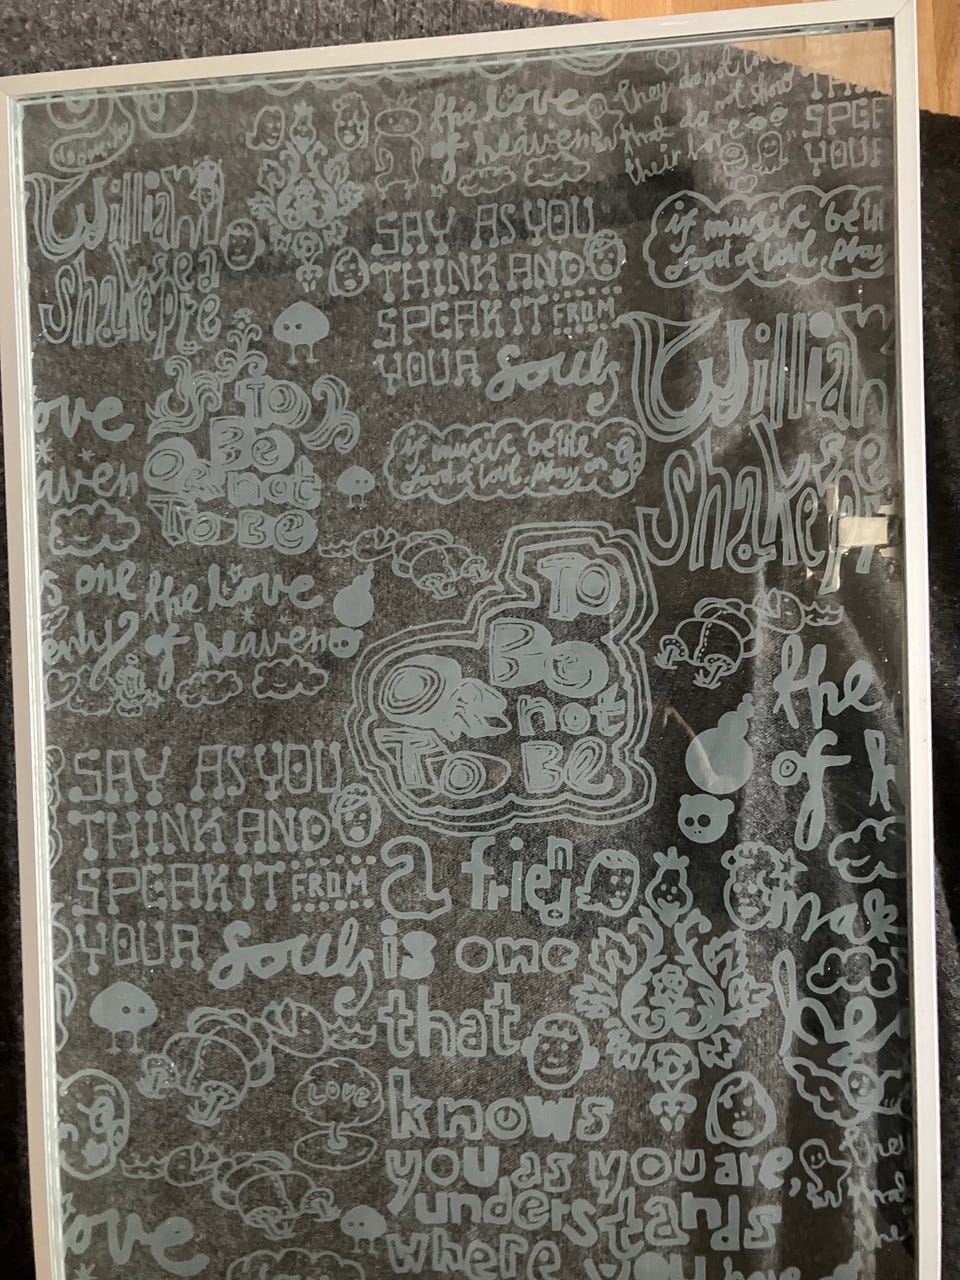 the love
of heaven
they do not love
that do not show
their love
SPEA
YOUR
William
Shakespeare
SAY AS YOU
THINK AND
SPEAK IT FROM
YOUR Souls
if music be th
food of love, play
William
Shakespe
TO
BE
OR not
TO BE
ove
aven
if music be the
food of love, play on
s one
enly
the love
of heaven
TO
BE
OR not
TO BE
the
of h
SAY AS YOU
THINK AND
SPEAK IT FROM
YOUR Souls
a friend
is one
that
knows
you as you are,
understands
where you have
mak
hea
LOVE
ove
the
that
the